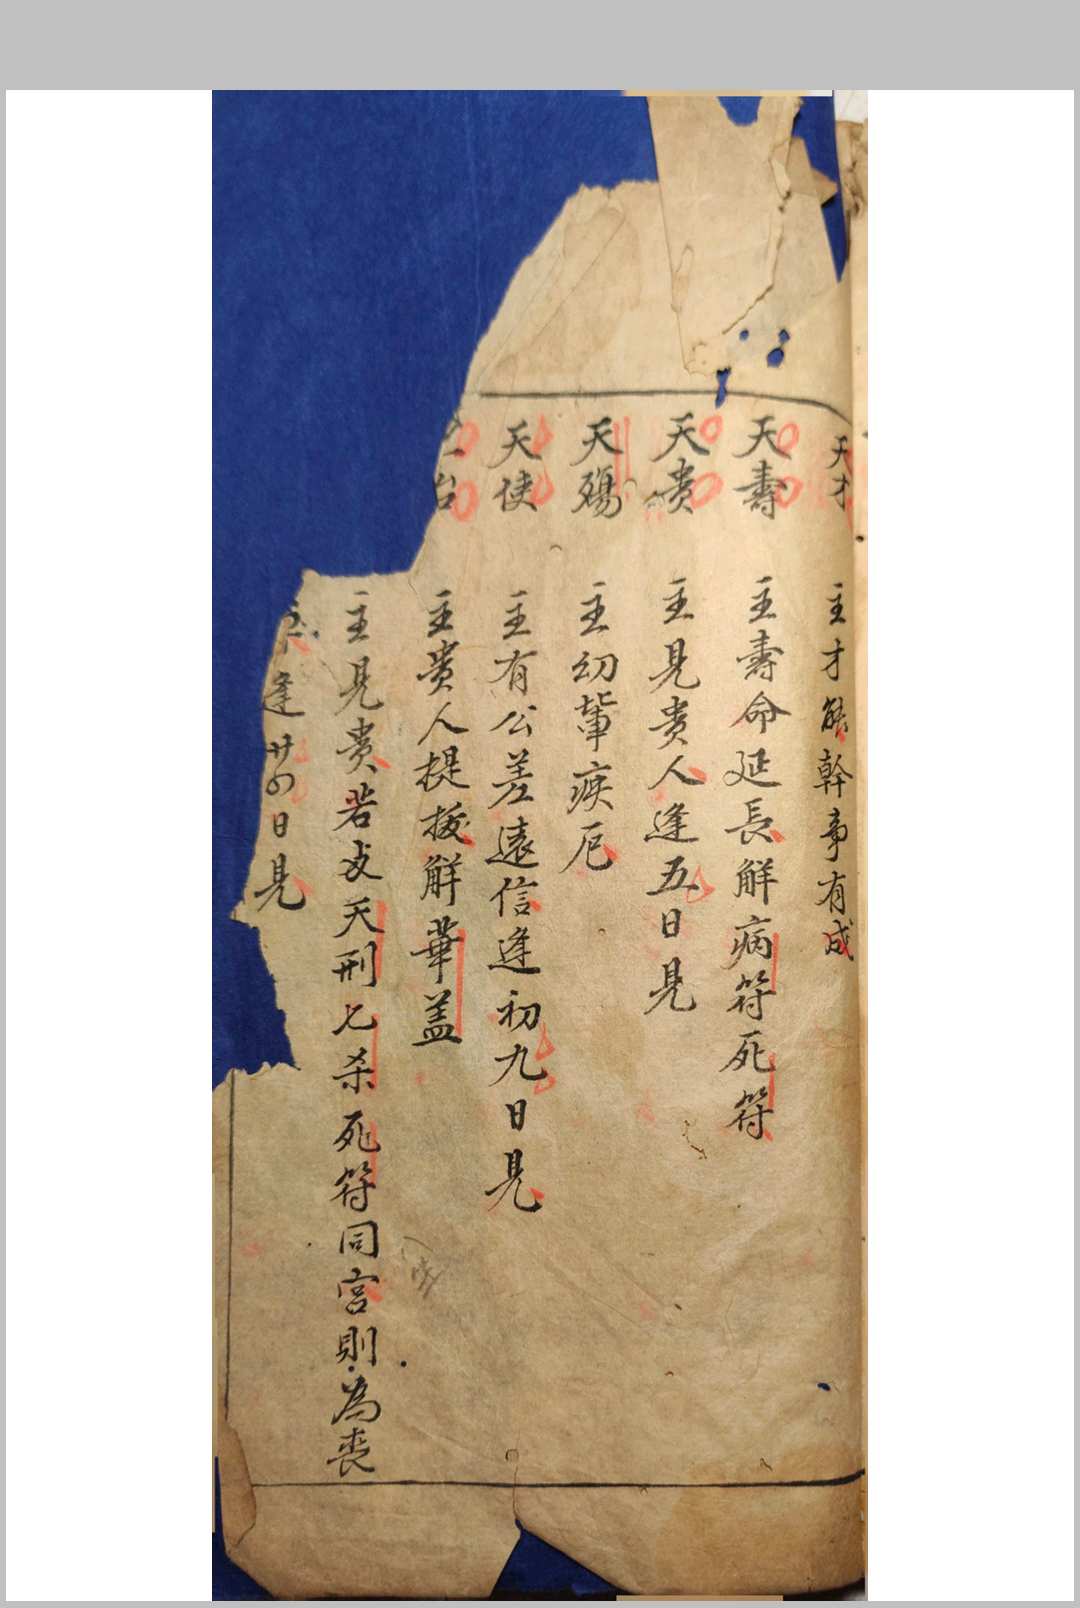 天才 主才能幹事有成
天壽 主壽命延長解病符死符
天貴 主見貴人逢五日見
天殤 主幼輩疾厄
天使 主有公差遠信逢初九日見
台 主貴人提拔解華盖
主見貴若支天刑七杀死符同宮則為喪
逢廿四日見